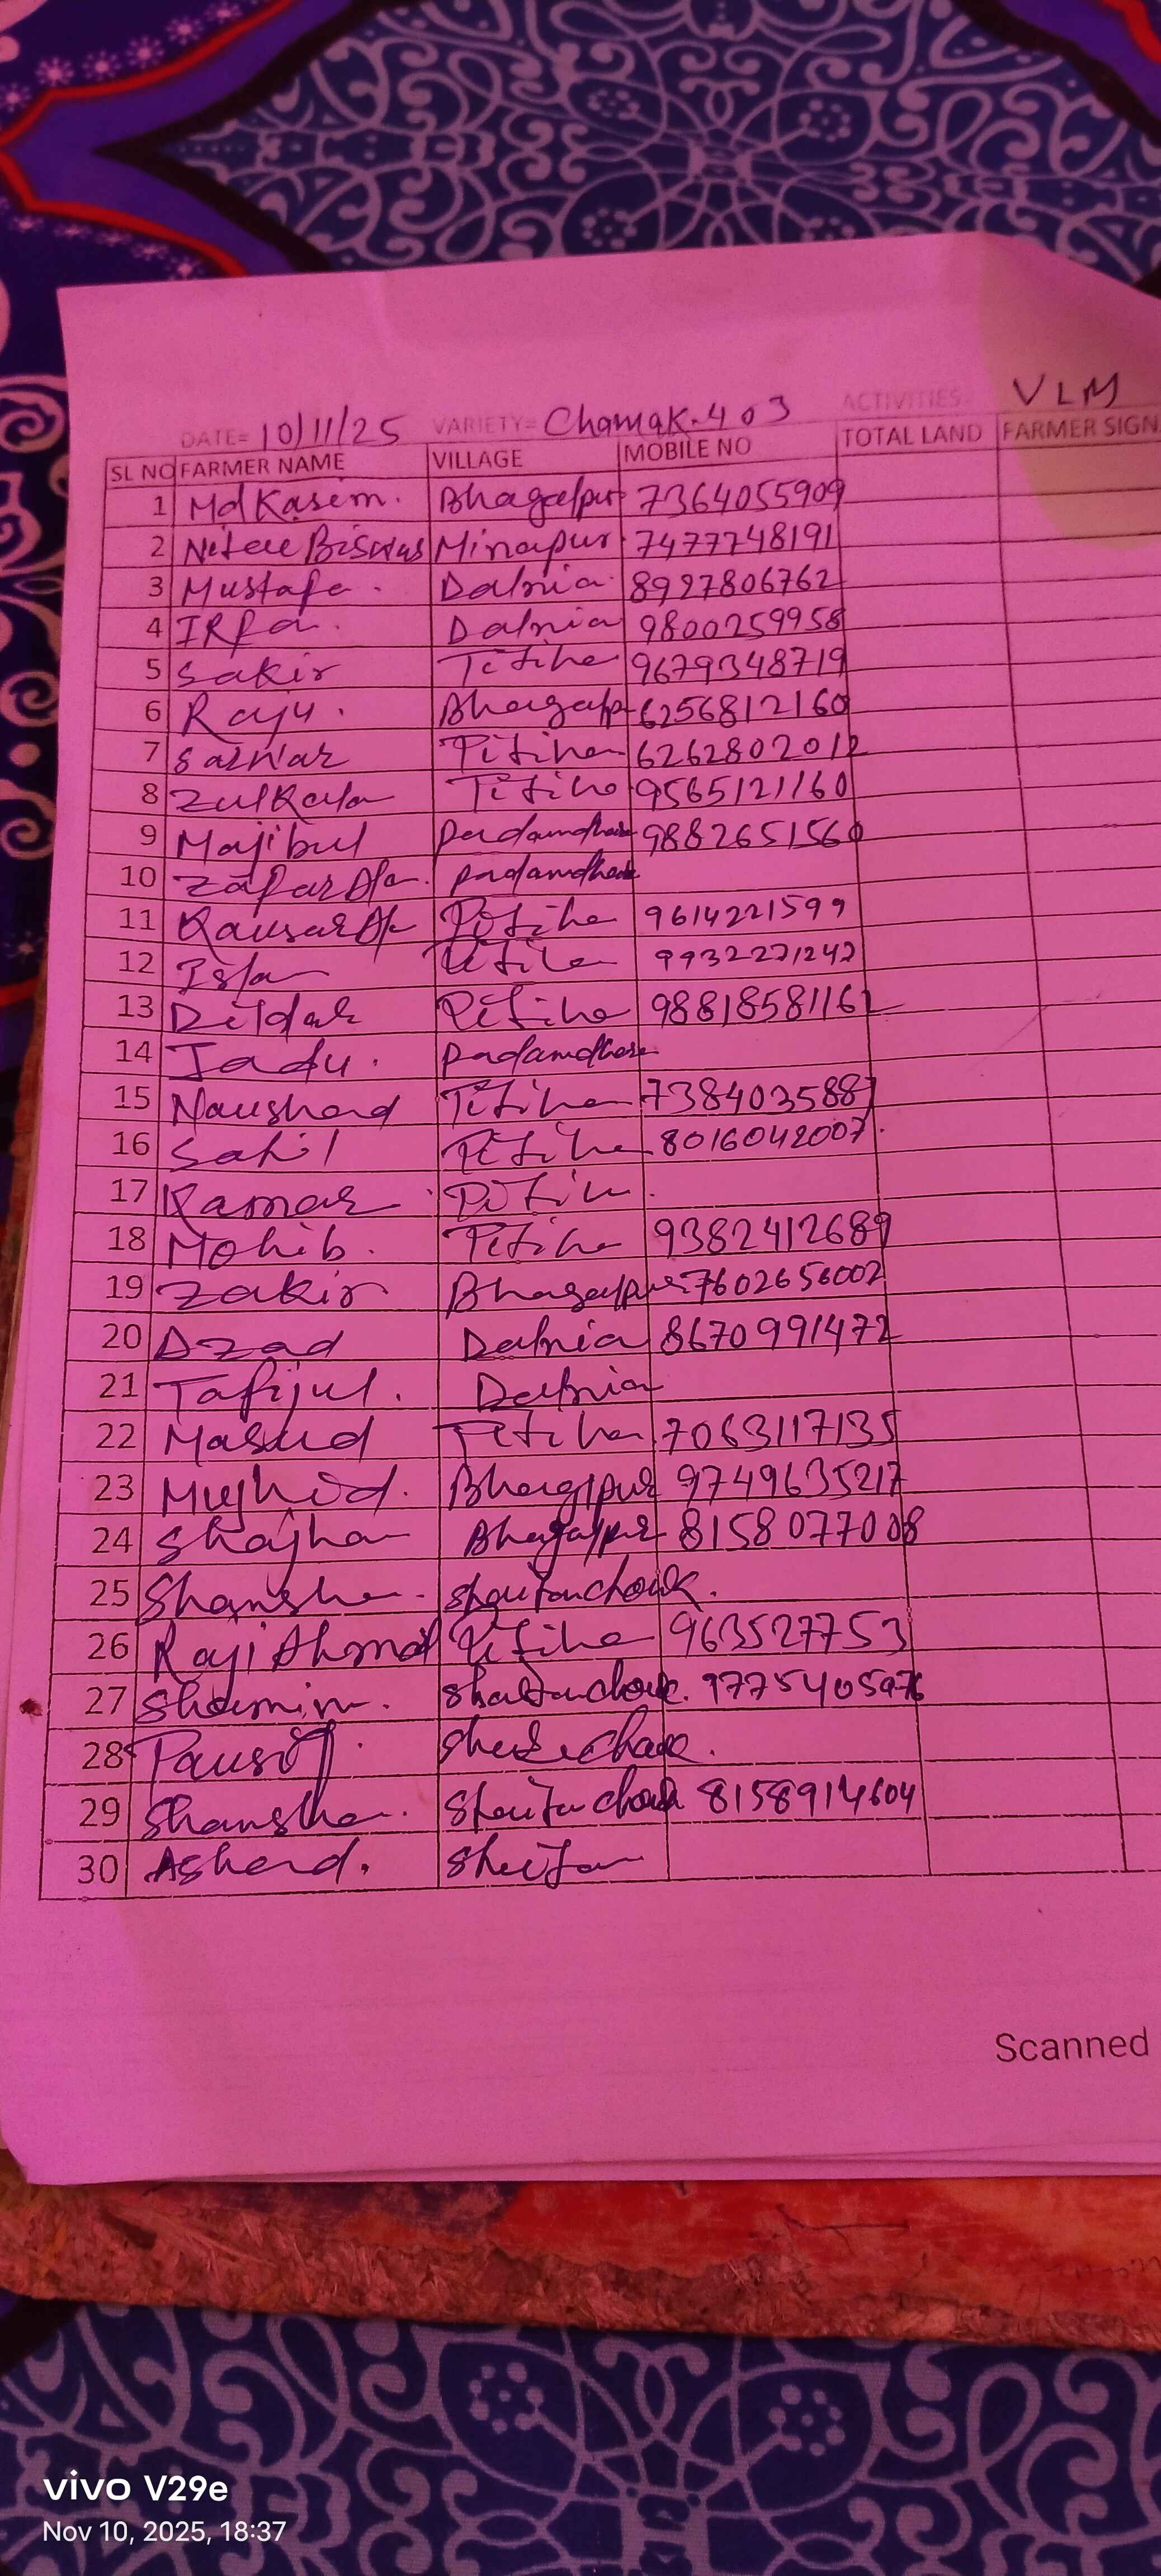 DATE= 10/11/25 VARIETY= Chamak.403 ACTIVITIES VLM
SL NO FARMER NAME VILLAGE MOBILE NO TOTAL LAND FARMER SIGN
1 Md Kasem. Bhagalpur 7364055909
2 Biswas Minapur. 7477748191
3 Mustafa. Dalnia. 8927806762
4 IRfa. Dalnia 9800259958
5 Sakir Titiha 9679348719
6 Raju. Bhagalp 6256812160
7 Sarwar Pitiha 6262802012
8 Zulkala Titiha 9565121160
9 Majibul padamdhara 9882651560
10 Zafar padamdhara
11 Kausar Pitiha 9614221599
12 Isla 9932271242
13 Dildar Pitiha 98818581162
14 Jadu. padamdhara
15 Naushad Titiha 7384035887
16 Sahil Pitiha 8016042007.
17 Kamar
18 Mohib. Pitiha 9382412689
19 Zakir Bhagalpur 7602656002
20 Azad Dalnia 8670991472
21 Tafijul. Dalnia
22 Masud Pitiha 7063117135
23 Bhaglpur 9749635217
24 Shajha Bhagalpur 8158077008
25 Shamsha. Shaitanchowk.
26 Raji Ahmad Pitiha 963527753
27 Shamim. 9775405976
28
29 Shamsha. 8158914604
30 Ashad. Sheitan
Scanned
vivo V29e
Nov 10, 2025, 18:37